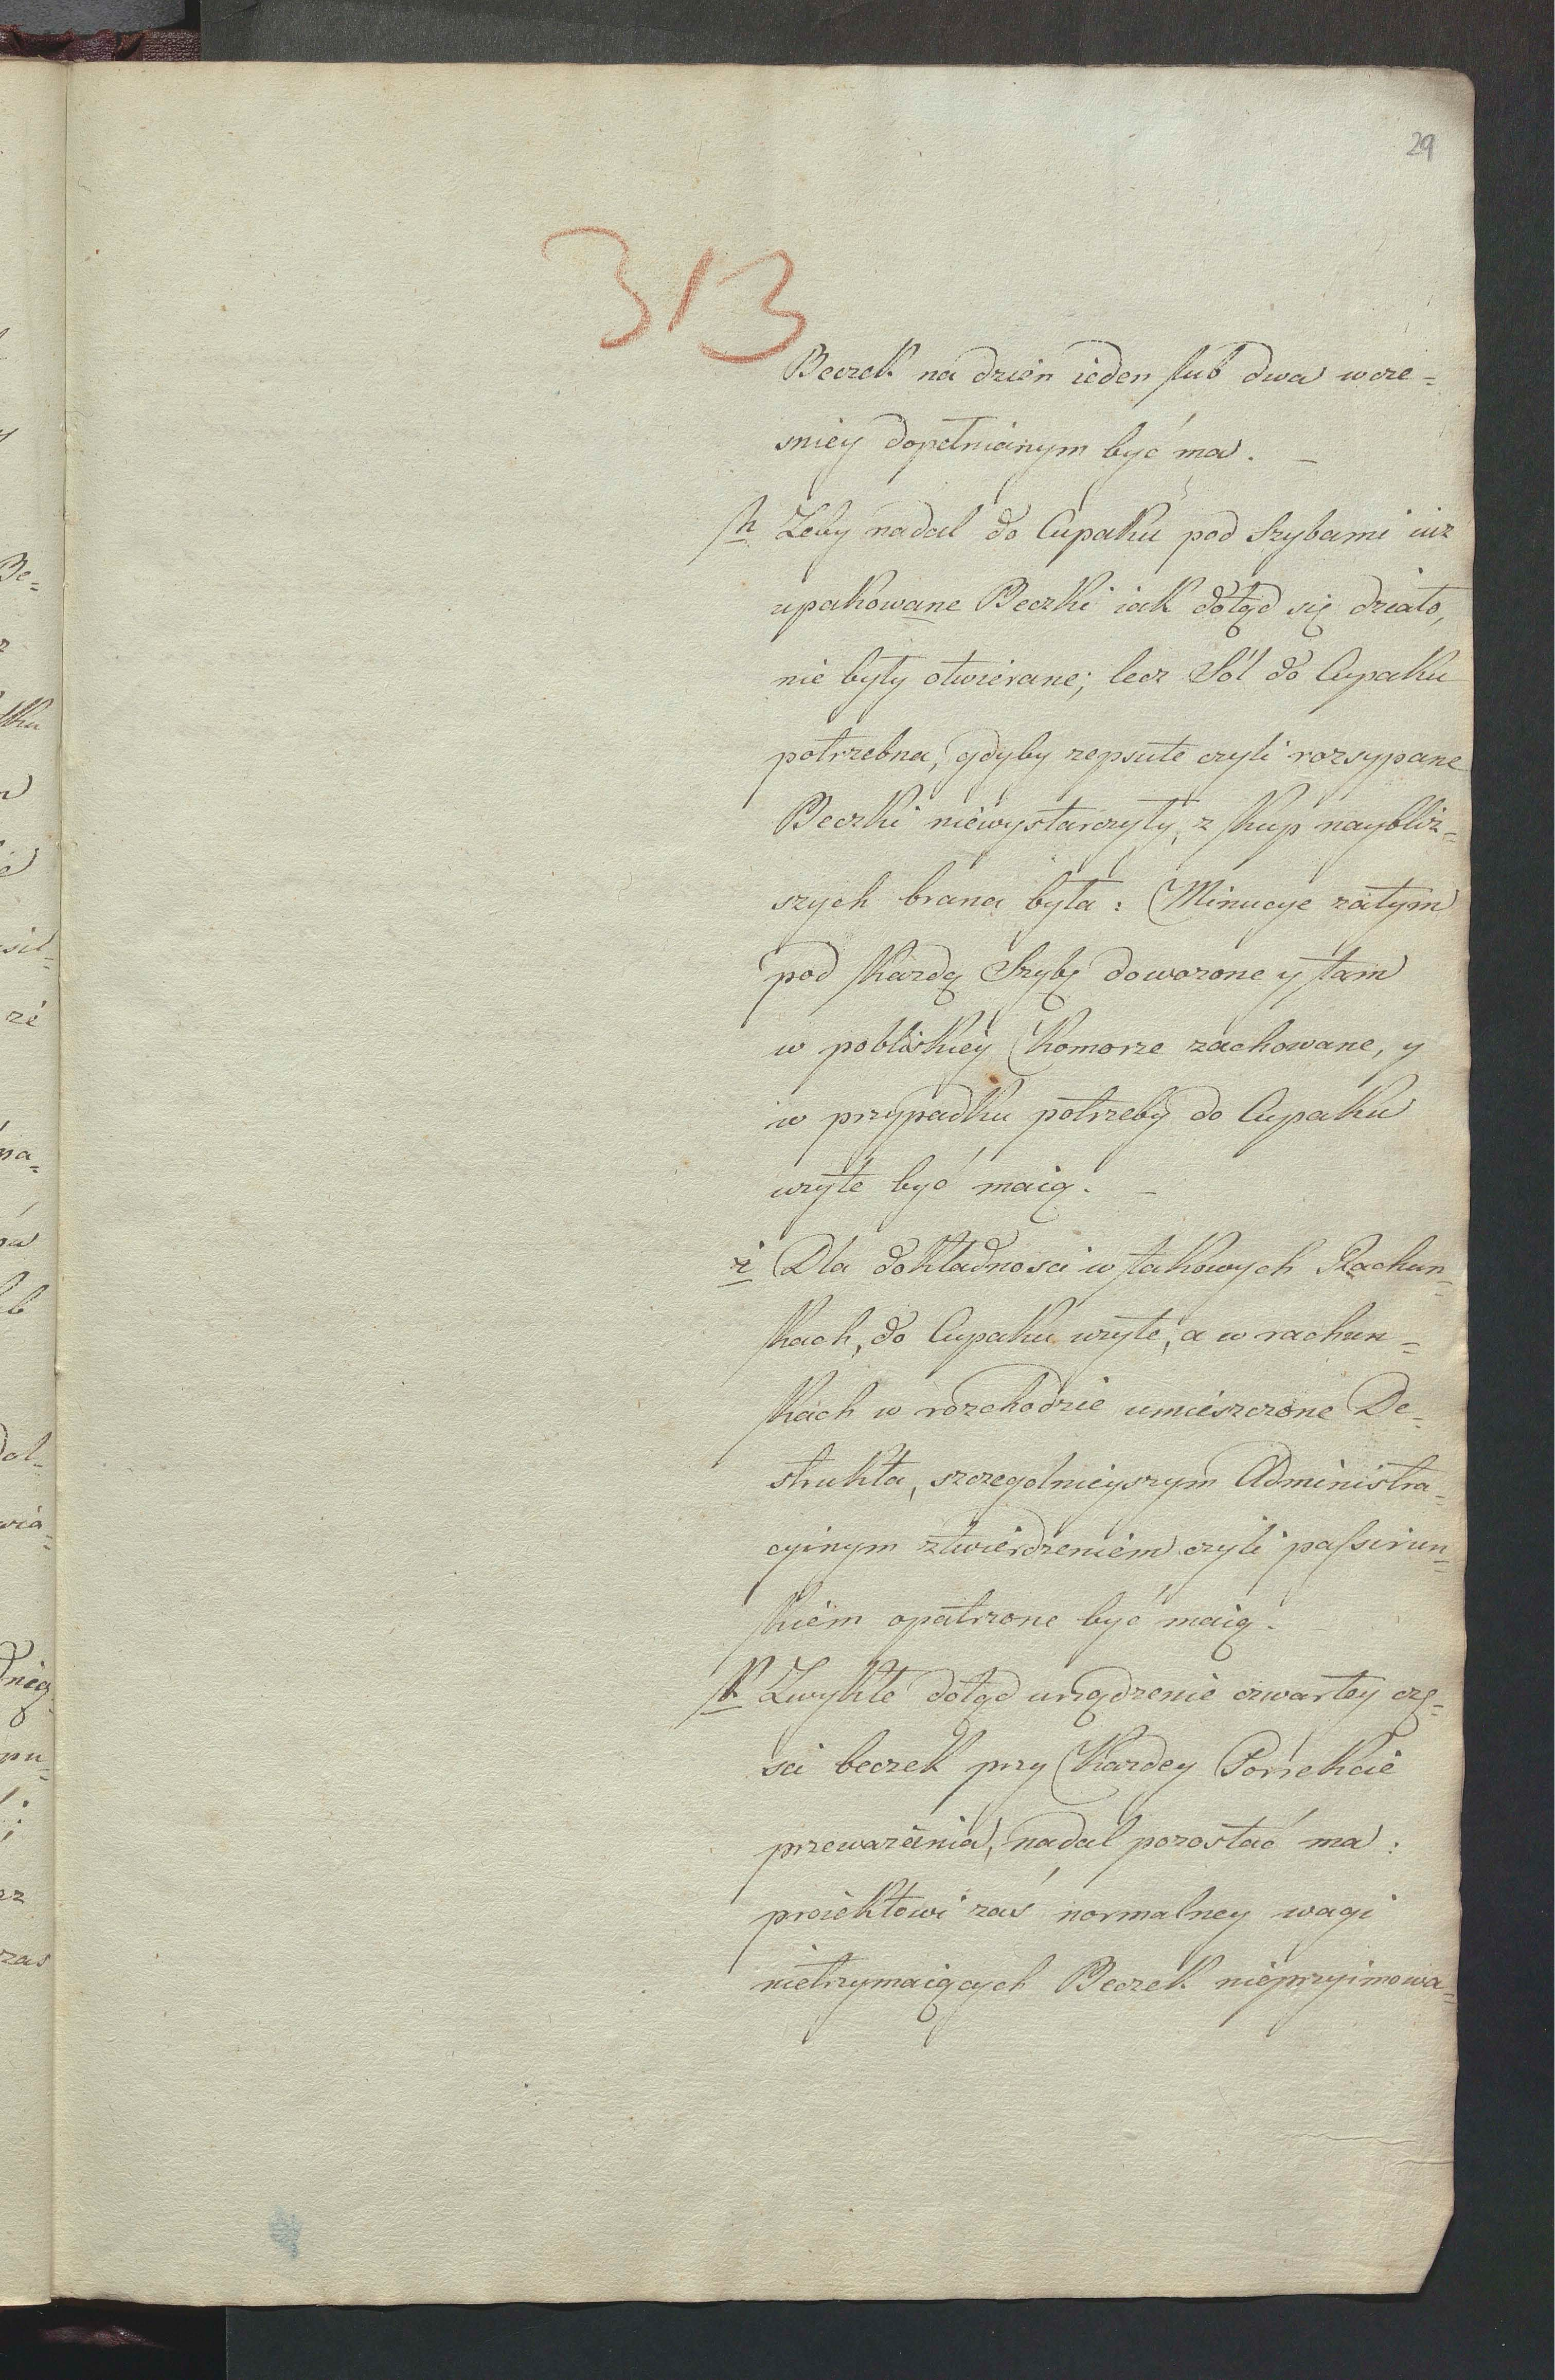 29
313
Beczek na dzien ieden lub dwa wcze=
sniey dopełnianym być ma. _
h Zeby nadal do Cupaku pod Szybami iuz
upakowane Beczki iak dotąd się działo,
nie były otwierane; lecz Sól do Cupaku
potrzebna, gdyby zepsute czyli rozsypane
Beczki niewystarczyły, z kup naybliz=
szych brana była: Minucye zatym
pod każdą Szybę dowozone y tam
w pobliskiey Komorze zachowane, y
w przypadku potrzeby do Cupaku
wzyte być maią. _
i Dla dokładnosci w takowych Rachun=
kach, do Cupaku wzyte, a w rachun=
kach w rozchodzie umieszczone De=
strukta, szczegolnieyszym Administra=
cyinym ztwierdzeniem czyli passirun=
kiem opatrzone być maią.
k Zwykłe dotąd urządzenie czwartey czę=
sci beczek przy Kazdey Porrekcie
przewazania, nadal pozostać ma:
proiektowi zaś normalney wagi
nietrzymaiących Beczek nieprzyimowa=